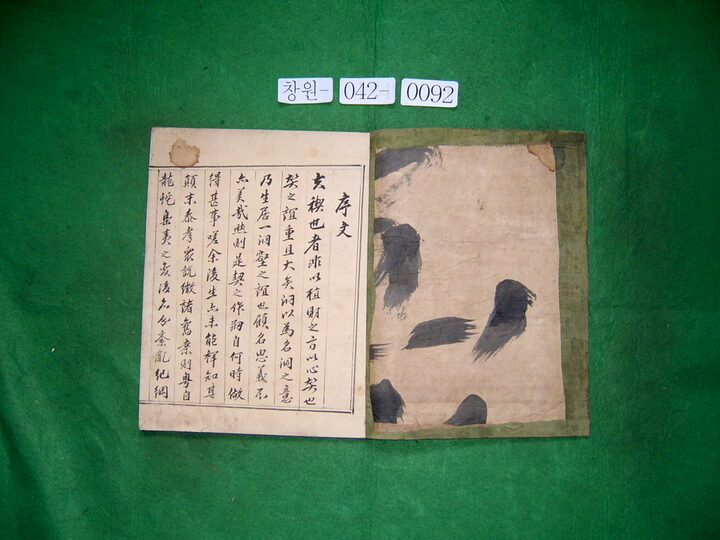 창원- 042- 0092
序文
夫禊也者非以植財之言以心契也
契之誼重且大矣洞以為名洞之意
乃生居一洞壑之誼也顧名思義不
亦美哉然則是契之作刱自何時倣
得甚事嗟余淺生亦未能詳知其
顛末泰考衆說徵諸舊案則粤自
龍蛇島夷之後名分紊亂紀綱